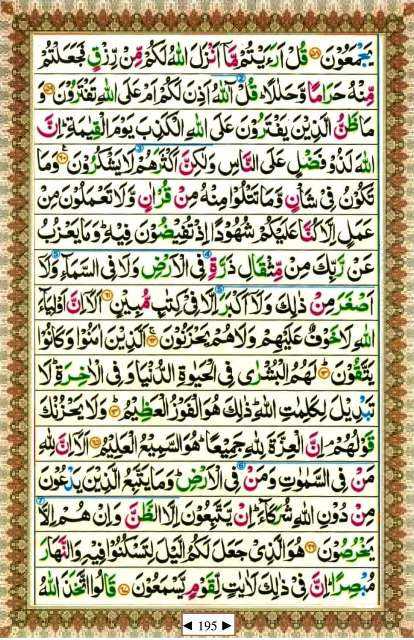 يَجْمَعُوْنَ ﴿۵۸﴾ قُلْ اَرَءَيْتُمْ مَّاۤ اَنْزَلَ اللّٰهُ لَكُمْ مِّنْ رِّزْقٍ فَجَعَلْتُمْ
مِّنْهُ حَرَامًا وَّحَلٰلًا ؕ قُلْ آٰللّٰهُ اَذِنَ لَكُمْ اَمْ عَلَى اللّٰهِ تَفْتَرُوْنَ ﴿۵۹﴾ وَ
مَا ظَنُّ الَّذِيْنَ يَفْتَرُوْنَ عَلَى اللّٰهِ الْكَذِبَ يَوْمَ الْقِيٰمَةِ ؕ اِنَّ
اللّٰهَ لَذُوْ فَضْلٍ عَلَى النَّاسِ وَلٰكِنَّ اَكْثَرَهُمْ لَا يَشْكُرُوْنَ ﴿۶۰﴾ وَمَا
تَكُوْنُ فِىْ شَاْنٍ وَّمَا تَتْلُوْا مِنْهُ مِنْ قُرْاٰنٍ وَّلَا تَعْمَلُوْنَ مِنْ
عَمَلٍ اِلَّا كُنَّا عَلَيْكُمْ شُهُوْدًا اِذْ تُفِيْضُوْنَ فِيْهِ ؕ وَمَا يَعْزُبُ
عَنْ رَّبِّكَ مِنْ مِّثْقَالِ ذَرَّةٍ فِى الْاَرْضِ وَلَا فِى السَّمَآءِ وَلَاۤ
اَصْغَرَ مِنْ ذٰلِكَ وَلَاۤ اَكْبَرَ اِلَّا فِىْ كِتٰبٍ مُّبِيْنٍ ﴿۶۱﴾ اَلَاۤ اِنَّ اَوْلِيَآءَ
اللّٰهِ لَا خَوْفٌ عَلَيْهِمْ وَلَا هُمْ يَحْزَنُوْنَ ﴿۶۲﴾ الَّذِيْنَ اٰمَنُوْا وَكَانُوْا
يَتَّقُوْنَ ﴿۶۳﴾ لَهُمُ الْبُشْرٰى فِى الْحَيٰوةِ الدُّنْيَا وَفِى الْاٰخِرَةِ ؕ لَا
تَبْدِيْلَ لِكَلِمٰتِ اللّٰهِ ؕ ذٰلِكَ هُوَ الْفَوْزُ الْعَظِيْمُ ﴿۶۴﴾ وَلَا يَحْزُنْكَ
قَوْلُهُمْ ۘ اِنَّ الْعِزَّةَ لِلّٰهِ جَمِيْعًا ؕ هُوَ السَّمِيْعُ الْعَلِيْمُ ﴿۶۵﴾ اَلَاۤ اِنَّ لِلّٰهِ
مَنْ فِى السَّمٰوٰتِ وَمَنْ فِى الْاَرْضِ ؕ وَمَا يَتَّبِعُ الَّذِيْنَ يَدْعُوْنَ
مِنْ دُوْنِ اللّٰهِ شُرَكَآءَ ؕ اِنْ يَّتَّبِعُوْنَ اِلَّا الظَّنَّ وَاِنْ هُمْ اِلَّا
يَخْرُصُوْنَ ﴿۶۶﴾ هُوَ الَّذِىْ جَعَلَ لَكُمُ الَّيْلَ لِتَسْكُنُوْا فِيْهِ وَالنَّهَارَ
مُبْصِرًا ؕ اِنَّ فِىْ ذٰلِكَ لَاٰيٰتٍ لِّقَوْمٍ يَّسْمَعُوْنَ ﴿۶۷﴾ قَالُوا اتَّخَذَ اللّٰهُ
◄ 195 ►